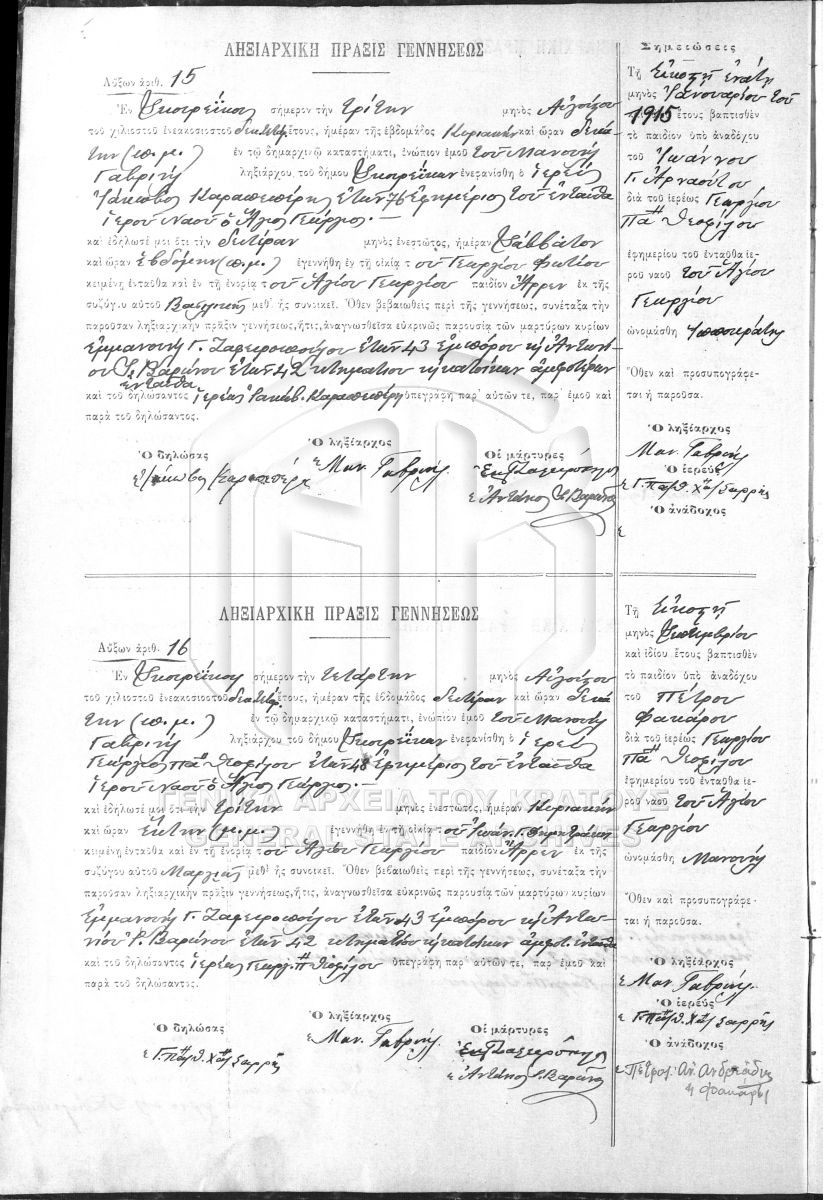 ΛΗΞΙΑΡΧΙΚΗ ΠΡΑΞΙΣ ΓΕΝΝΗΣΕΩΣ
Αὔξων ἀριθ. 15
Ἐν σήμερον τὴν τρίτην μηνὸς Αὐγούστου
τοῦ χιλιοστοῦ ἐνεακοσιοστοῦ ἔτους, ἡμέραν τῆς ἑβδομάδος Κυριακὴν καὶ ὥραν δεκά
την (π.μ.) ἐν τῷ δημαρχικῷ καταστήματι, ἐνώπιον ἐμοῦ τοῦ Μανουὴλ
Γαβριὴλ ληξιάρχου τοῦ δήμου ἐνεφανίσθη ὁ ἱερεὺς
Ἰάκωβος Καραπιπέρης ἐτῶν 76 ἐφημέριος τοῦ ἐνταῦθα
ἱεροῦ Ναοῦ ὁ Ἅγιος Γεώργιος.—
καὶ ἐδήλωσέ μοι ὅτι τὴν δευτέραν μηνὸς ἐνεστῶτος, ἡμέραν Σάββατον
καὶ ὥραν ἑβδόμην (π.μ.) ἐγεννήθη ἐν τῇ οἰκίᾳ τοῦ Γεωργίου Φωτίου
κειμένῃ ἐνταῦθα καὶ ἐν τῇ ἐνορίᾳ τοῦ Ἁγίου Γεωργίου παιδίον Ἄρρεν ἐκ τῆς
συζύγου αὐτοῦ Βασιλικῆς μεθ' ἧς συνοικεῖ. Ὅθεν βεβαιωθεὶς περὶ τῆς γεννήσεως, συνέταξα τὴν
παροῦσαν ληξιαρχικὴν πρᾶξιν γεννήσεως, ἥτις, ἀναγνωσθεῖσα εὐκρινῶς παρουσίᾳ τῶν μαρτύρων κυρίων
Ἐμμανουὴλ Γ. Ζαφειροπούλου ἐτῶν 43 ἐμπόρου κ Ἀντωνί-
ου Βαρώνου ἐτῶν 42 κτηματίου κατοίκων ἀμφοτέρων
ἐνταῦθα
καὶ τοῦ δηλώσαντος ἱερέως Ἰακώβ. Καραπιπέρη ὑπεγράφη παρ' αὐτῶν τε, παρ' ἐμοῦ καὶ
παρὰ τοῦ δηλώσαντος.
Ὁ δηλώσας
Ὁ ληξίαρχος
Μαν. Γαβριήλ.
Οἱ μάρτυρες
Ἀντώνιος Βαρώνος
Σημειώσεις
Τῇ Εἰκοστῇ ἐνάτῃ
μηνὸς Ἰανουαρίου τοῦ
1915 ἔτους βαπτισθὲν
τὸ παιδίον ὑπὸ ἀναδόχου
τοῦ Ἰωάννου
Γ. Ἀρναούτου
διὰ τοῦ ἱερέως Γεωργίου
Παπ Θεοφίλου
ἐφημερίου τοῦ ἐνταῦθα ἱε-
ροῦ ναοῦ τοῦ Ἁγίου
Γεωργίου
ὠνομάσθη Ἱπποκράτης
Ὅθεν καὶ προσυπογράφε-
ται ἡ παροῦσα.
Ὁ ληξίαρχος
Μαν. Γαβριήλ
Ὁ ἱερεὺς
Ὁ ἀνάδοχος
ΛΗΞΙΑΡΧΙΚΗ ΠΡΑΞΙΣ ΓΕΝΝΗΣΕΩΣ
Αὔξων ἀριθ. 16
Ἐν σήμερον τὴν τετάρτην μηνὸς Αὐγούστου
τοῦ χιλιοστοῦ ἐνεακοσιοστοῦ ἔτους, ἡμέραν τῆς ἑβδομάδος Δευτέραν καὶ ὥραν δεκά
την (π.μ.) ἐν τῷ δημαρχικῷ καταστήματι, ἐνώπιον ἐμοῦ τοῦ Μανουὴλ
Γαβριὴλ ληξιάρχου τοῦ δήμου ἐνεφανίσθη ὁ ἱερεὺς
Γεώργιος Παπ Θεοφίλου ἐτῶν 48 ἐφημέριος τοῦ ἐνταῦθα
ἱεροῦ Ναοῦ ὁ Ἅγιος Γεώργιος.—
καὶ ἐδήλωσέ μοι ὅτι τὴν τρίτην μηνὸς ἐνεστῶτος, ἡμέραν Κυριακὴν
καὶ ὥραν ἕκτην (μ.μ.) ἐγεννήθη ἐν τῇ οἰκίᾳ τοῦ Ἰωάν. Γ.
κειμένῃ ἐνταῦθα καὶ ἐν τῇ ἐνορίᾳ τοῦ Ἁγίου Γεωργίου παιδίον Ἄρρεν ἐκ τῆς
συζύγου αὐτοῦ Μαρίας μεθ' ἧς συνοικεῖ. Ὅθεν βεβαιωθεὶς περὶ τῆς γεννήσεως, συνέταξα τὴν
παροῦσαν ληξιαρχικὴν πρᾶξιν γεννήσεως, ἥτις, ἀναγνωσθεῖσα εὐκρινῶς παρουσίᾳ τῶν μαρτύρων κυρίων
Ἐμμανουὴλ Γ. Ζαφειροπούλου ἐτῶν 43 ἐμπόρου κ Ἀντω-
νίου Βαρώνου ἐτῶν 42 κτηματίου κατοίκων ἀμφοτ. ἐνταῦθα
καὶ τοῦ δηλώσαντος ἱερέως Γεωργ. Π Θεοφίλου ὑπεγράφη παρ' αὐτῶν τε, παρ' ἐμοῦ καὶ
παρὰ τοῦ δηλώσαντος.
Ὁ δηλώσας
Ὁ ληξίαρχος
Μαν. Γαβριήλ.
Οἱ μάρτυρες
Ἀντώνιος Βαρώνος
Τῇ Εἰκοστῇ
μηνὸς Σεπτεμβρίου
καὶ ἰδίου ἔτους βαπτισθὲν
τὸ παιδίον ὑπὸ ἀναδόχου
τοῦ Πέτρου
Φακάρου
διὰ τοῦ ἱερέως Γεωργίου
Παπ Θεοφίλου
ἐφημερίου τοῦ ἐνταῦθα ἱε-
ροῦ ναοῦ τοῦ Ἁγίου
Γεωργίου
ὠνομάσθη Μανουὴλ
Ὅθεν καὶ προσυπογράφε-
ται ἡ παροῦσα.
Ὁ ληξίαρχος
Μαν. Γαβριήλ.
Ὁ ἱερεὺς
Ὁ ἀνάδοχος
Πέτρος Ἀν. Ἀνδριάδης
ΓΕΝΙΚΑ ΑΡΧΕΙΑ ΤΟΥ ΚΡΑΤΟΥΣ
GENERAL STATE ARCHIVES